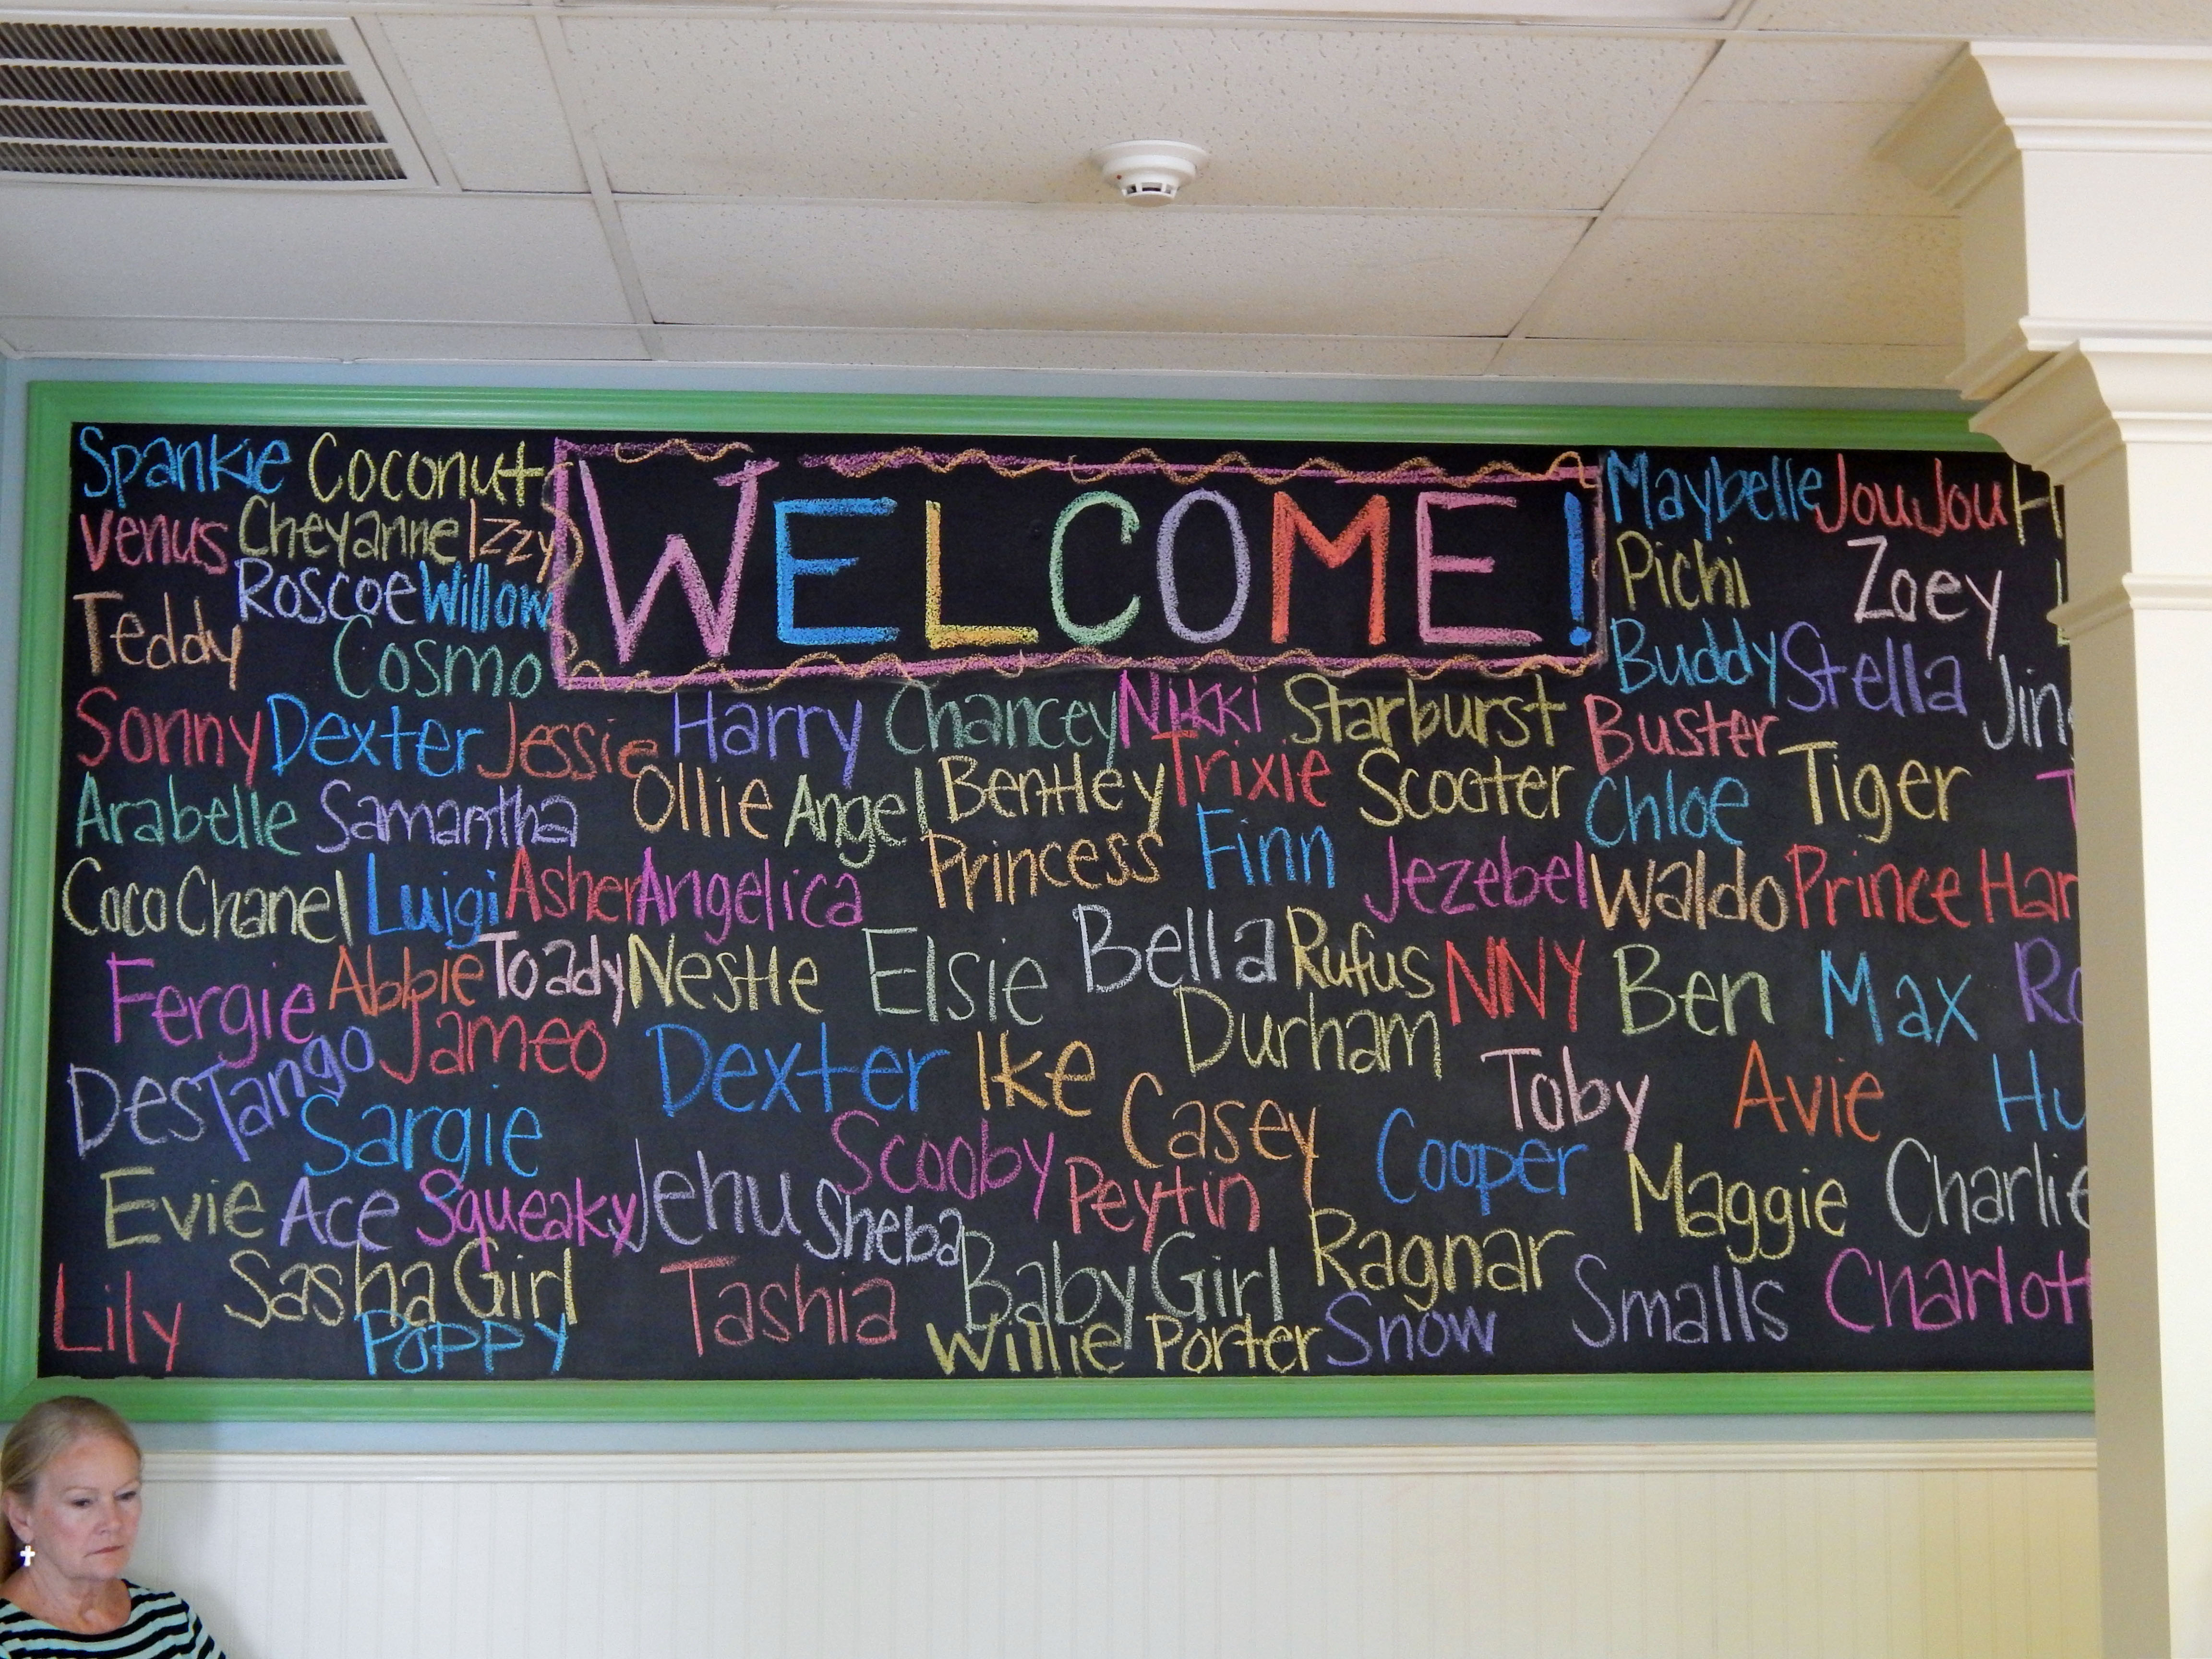 Spankie Coconut WELCOME! Maybelle JouJou H
Venus Cheyanne Izzy Pichi Zoey
Teddy Roscoe Willow Buddy Stella Jin
Cosmo
Sonny Dexter Jessie Harry Chancey Nikki Starburst Buster Tiger
Arabelle Samantha Ollie Angel Bentley Trixie Scooter Chloe T
CocoChanel Luigi Asher Angelica Princess Finn Jezebel Waldo Prince Har
Fergie Abbie Toady Nestle Elsie Bella Rufus NNY Ben Max Ro
Des Tango Jameo Dexter Ike Durham Toby Avie Hu
Sargie Scooby Casey Cooper Maggie Charlie
Evie Ace Squeaky Jehu Sheba Peytin Ragnar
Lily Sasha Girl Tashia Baby Girl Smalls Charlott
Poppy Willie Porter Snow